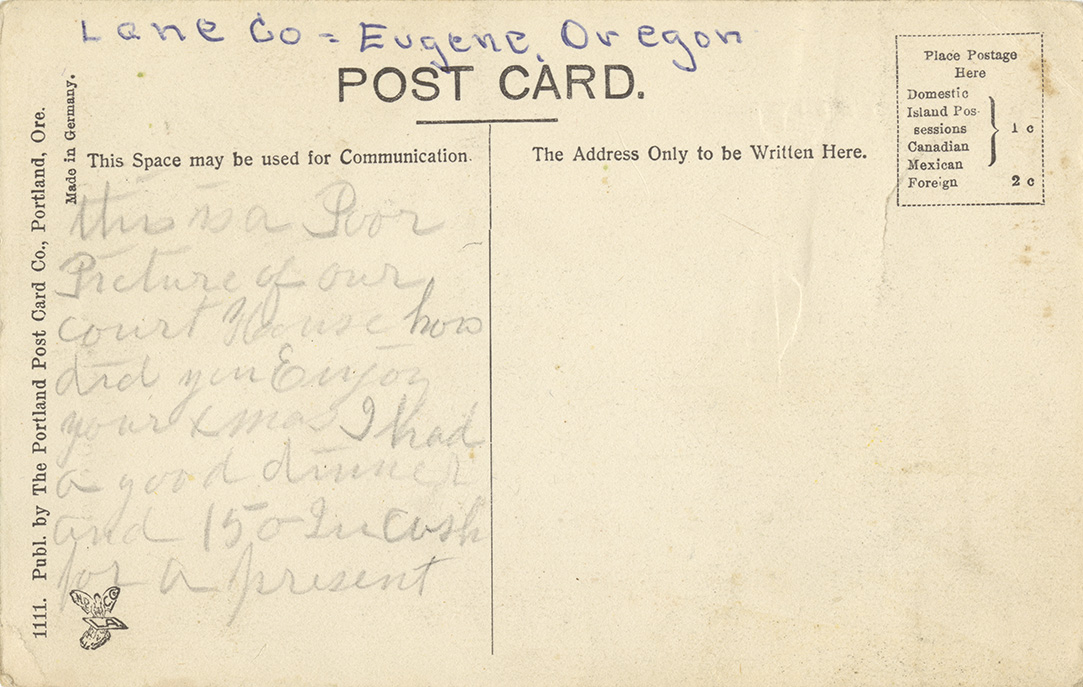 Lane Co = Eugene, Oregon
POST CARD.
This Space may be used for Communication.
The Address Only to be Written Here.
Place Postage
Here
Domestic
Island Pos-
sessions
Canadian
Mexican
1 c
Foreign 2 c
this is a Poor
Picture of our
court House how
did you Enjoy
your xmas I had
a good dinner
and 150 In cash
for a present
1111. Publ. by The Portland Post Card Co., Portland, Ore.
Made in Germany.